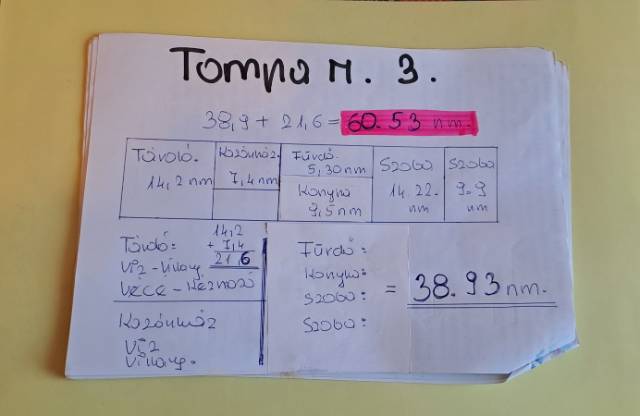 Tompa M. 3.
38,9 + 21,6 = 60.53 nm.
Tároló. 14,2 nm
Kazánház. 7,4 nm
Fürdő. 5,30 nm
Konyha 9,5 nm
Szoba 14.22. nm
Szoba 9.9 nm
14,2
+ 7,4
21,6
Tároló:
Víz - Villany.
Vece - Kézmosó
Kazánház
Víz
Villany.
Fürdő:
Konyha:
Szoba:
Szoba:
= 38.93 nm.